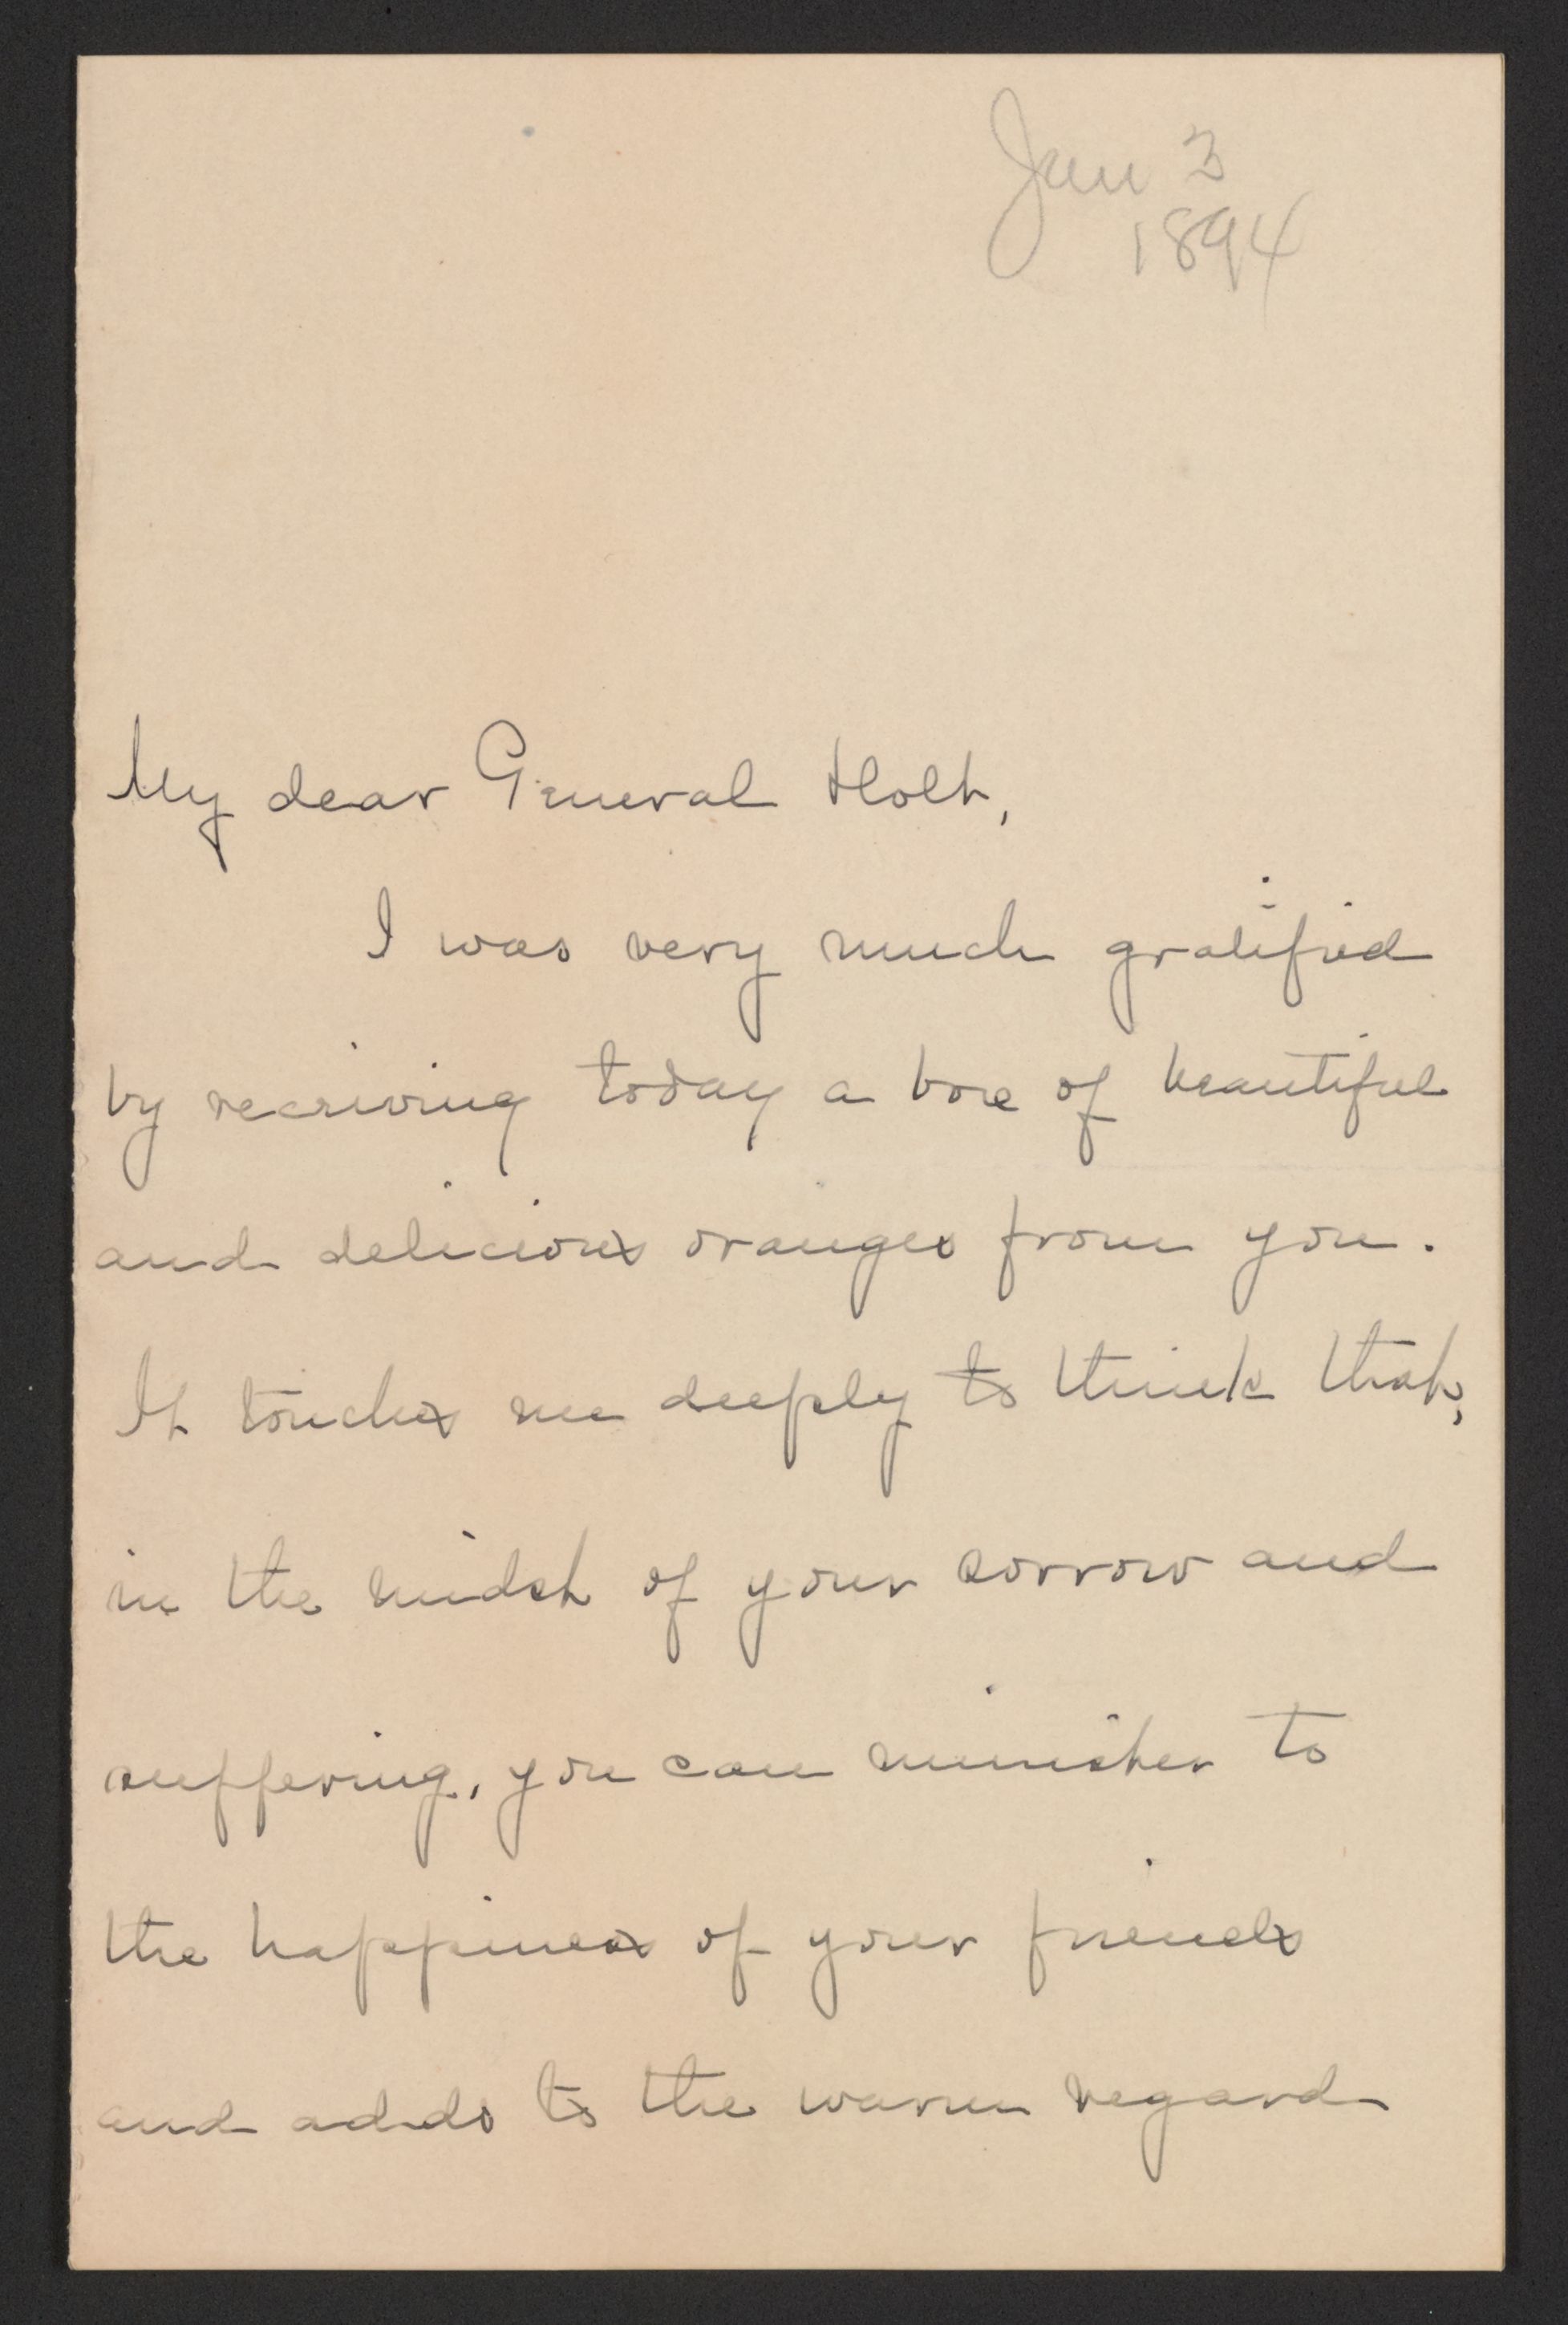 Jan 3
1894
My dear General Holt,
I was very much gratified
by receiving today a box of beautiful
and delicious oranges from you.
It touches me deeply to think that,
in the midst of your sorrow and
suffering, you can minister to
the happiness of your friends
and adds to the warm regard